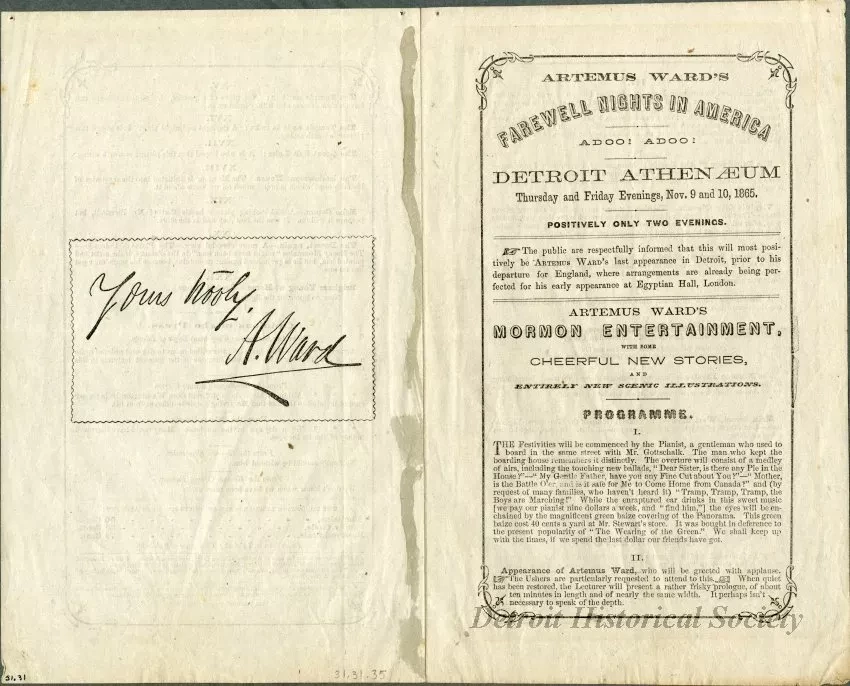 Yours trooly,
A. Ward
ARTEMUS WARD'S
FAREWELL NIGHTS IN AMERICA
ADOO! ADOO!
DETROIT ATHENÆUM
Thursday and Friday Evenings, Nov. 9 and 10, 1865.
POSITIVELY ONLY TWO EVENINGS.
☞ The public are respectfully informed that this will most posi-
tively be ARTEMUS WARD'S last appearance in Detroit, prior to his
departure for England, where arrangements are already being per-
fected for his early appearance at Egyptian Hall, London.
ARTEMUS WARD'S
MORMON ENTERTAINMENT,
WITH SOME
CHEERFUL NEW STORIES,
AND
ENTIRELY NEW SCENIC ILLUSTRATIONS.
PROGRAMME.
I.
THE Festivities will be commenced by the Pianist, a gentleman who used to
board in the same street with Mr. Gottschalk. The man who kept the
boarding-house remembers it distinctly. The overture will consist of a medley
of airs, including the touching new ballads, "Dear Sister, is there any Pie in the
House?"—"My Gentle Father, have you any Fine Cut about You?"—"Mother,
is the Battle O'er, and is it safe for Me to Come Home from Canada?" and (by
request of many families, who haven't heard it) "Tramp, Tramp, Tramp, the
Boys are Marching!" While the enraptured ear drinks in this sweet music
[we pay our pianist nine dollars a week, and "find him,"] the eyes will be en-
chained by the magnificent green baize covering of the Panorama. This green
baize cost 40 cents a yard at Mr. Stewart's store. It was bought in deference to
the present popularity of "The Wearing of the Green." We shall keep up
with the times, if we spend the last dollar our friends have got.
II.
Appearance of Artemus Ward, who will be greeted with applause.
☞ The Ushers are particularly requested to attend to this. ☜ When quiet
has been restored, the Lecturer will present a rather frisky prologue, of about
ten minutes in length and of nearly the same width. It perhaps isn't
necessary to speak of the depth.
Detroit Historical Society
51.31
31.31.35